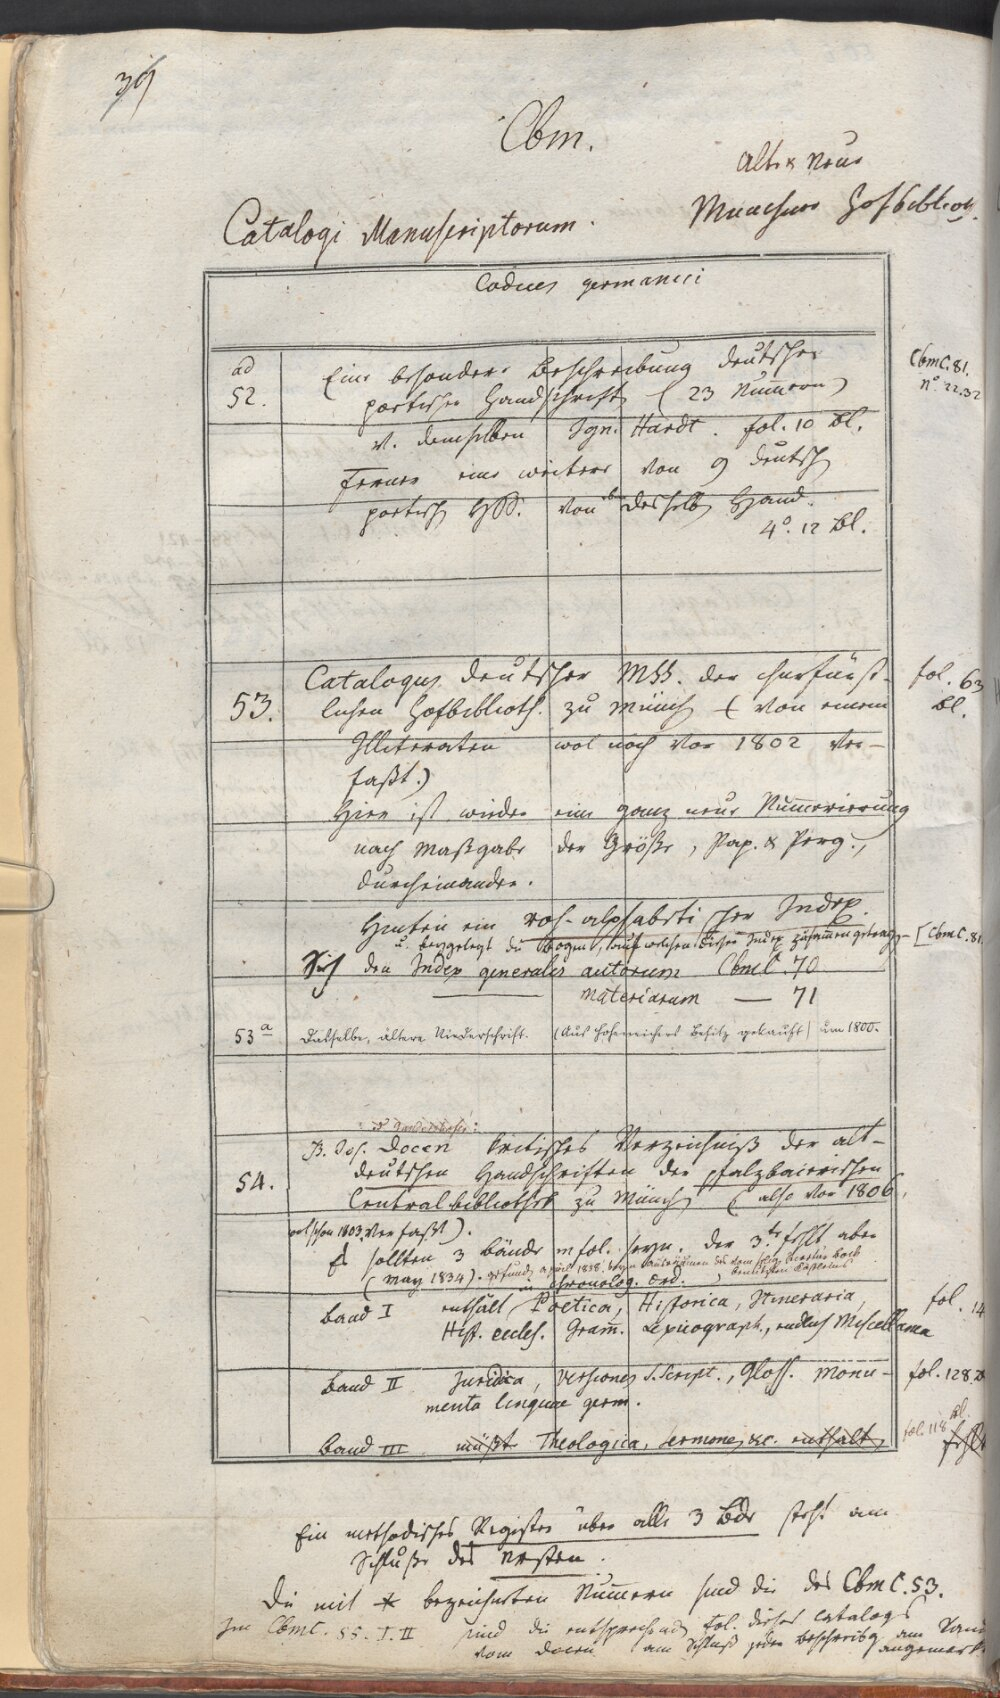 39
Cbm.
Alte & Neue
Catalogi Manuscriptorum.
Münchner Hofbiblioth.
Codices germanici
ad
52.
Eine besondere Beschreibung deutscher
poetischer Handschriften (23 Nummern)
Cbm C. 81.
n° 22. 32
v. demselben Ign. Hardt. fol. 10 Bl.
Ferner eine weitere von 9 deutsch
poetisch HSS. von derselben Hand.
4°. 12 Bl.
53.
Catalogus deutscher MSS. der churfürst-
lichen Hofbiblioth. zu Münch (von einem
fol. 63
Bl.
Illiteraten wol noch vor 1802 ver-
faßt.)
Hier ist wieder eine ganz neue Nummerierung
nach Maßgabe der Größe, Pap. & Perg.,
durcheinander.
Hinten ein roh-alphabetischer Index.
u. beygelegt die Bogen, auf welchen dieser Index zusammengetragen [Cbm C. 81.
Sieh den Index generalis autorum Cbm C. 70
materiarum — 71
53 a
Dasselbe, ältere Niederschrift. (Aus Hoheneichers Besitz gekauft) um 1800.
54.
B. Jos. Docen kritisches Verzeichniß der alt-
deutschen Handschriften der pfalzbaierischen
Centralbibliothek zu Münch (also vor 1806,
wol schon 1803 verfaßt).
Es sollten 3 Bände in fol. seyn. Der 3.te fehlt aber
(May 1834). gefunden April 1838. beym Ausräumen des
in chronolog. Ord.
Band I enthält Poetica, Historica, Itineraria,
fol. 14
Hist. eccles. Gramm. Lexicograph., endlich Miscellanea
Band II Juridica, Versiones S. Script., Gloss. Monu-
fol. 128.
menta linguae germ.
Band III müßt Theologica, Sermones &c. enthalt
fol. 118 Bl.
fehlt
Ein methodisches Register über alle 3 Bde steht am
Schluße des ersten.
Die mit * bezeichneten Nummern sind die des Cbm C. 53.
Im Cbm C. 55. I. II sind die entsprechend. fol. dieses Catalogs
vom Docen am Schluß jeder Beschreibg am Rand
angemerkt